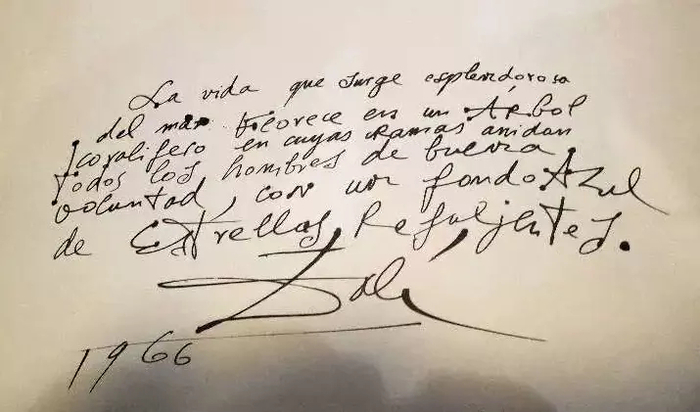 La vida que surge esplendorosa
del mar Florece en un Árbol
coralifero en cuyas Ramas anidan
todos los hombres de buena
voluntad, con un fondo Azul
de Estrellas, Refuljentes.
Dalí
1966